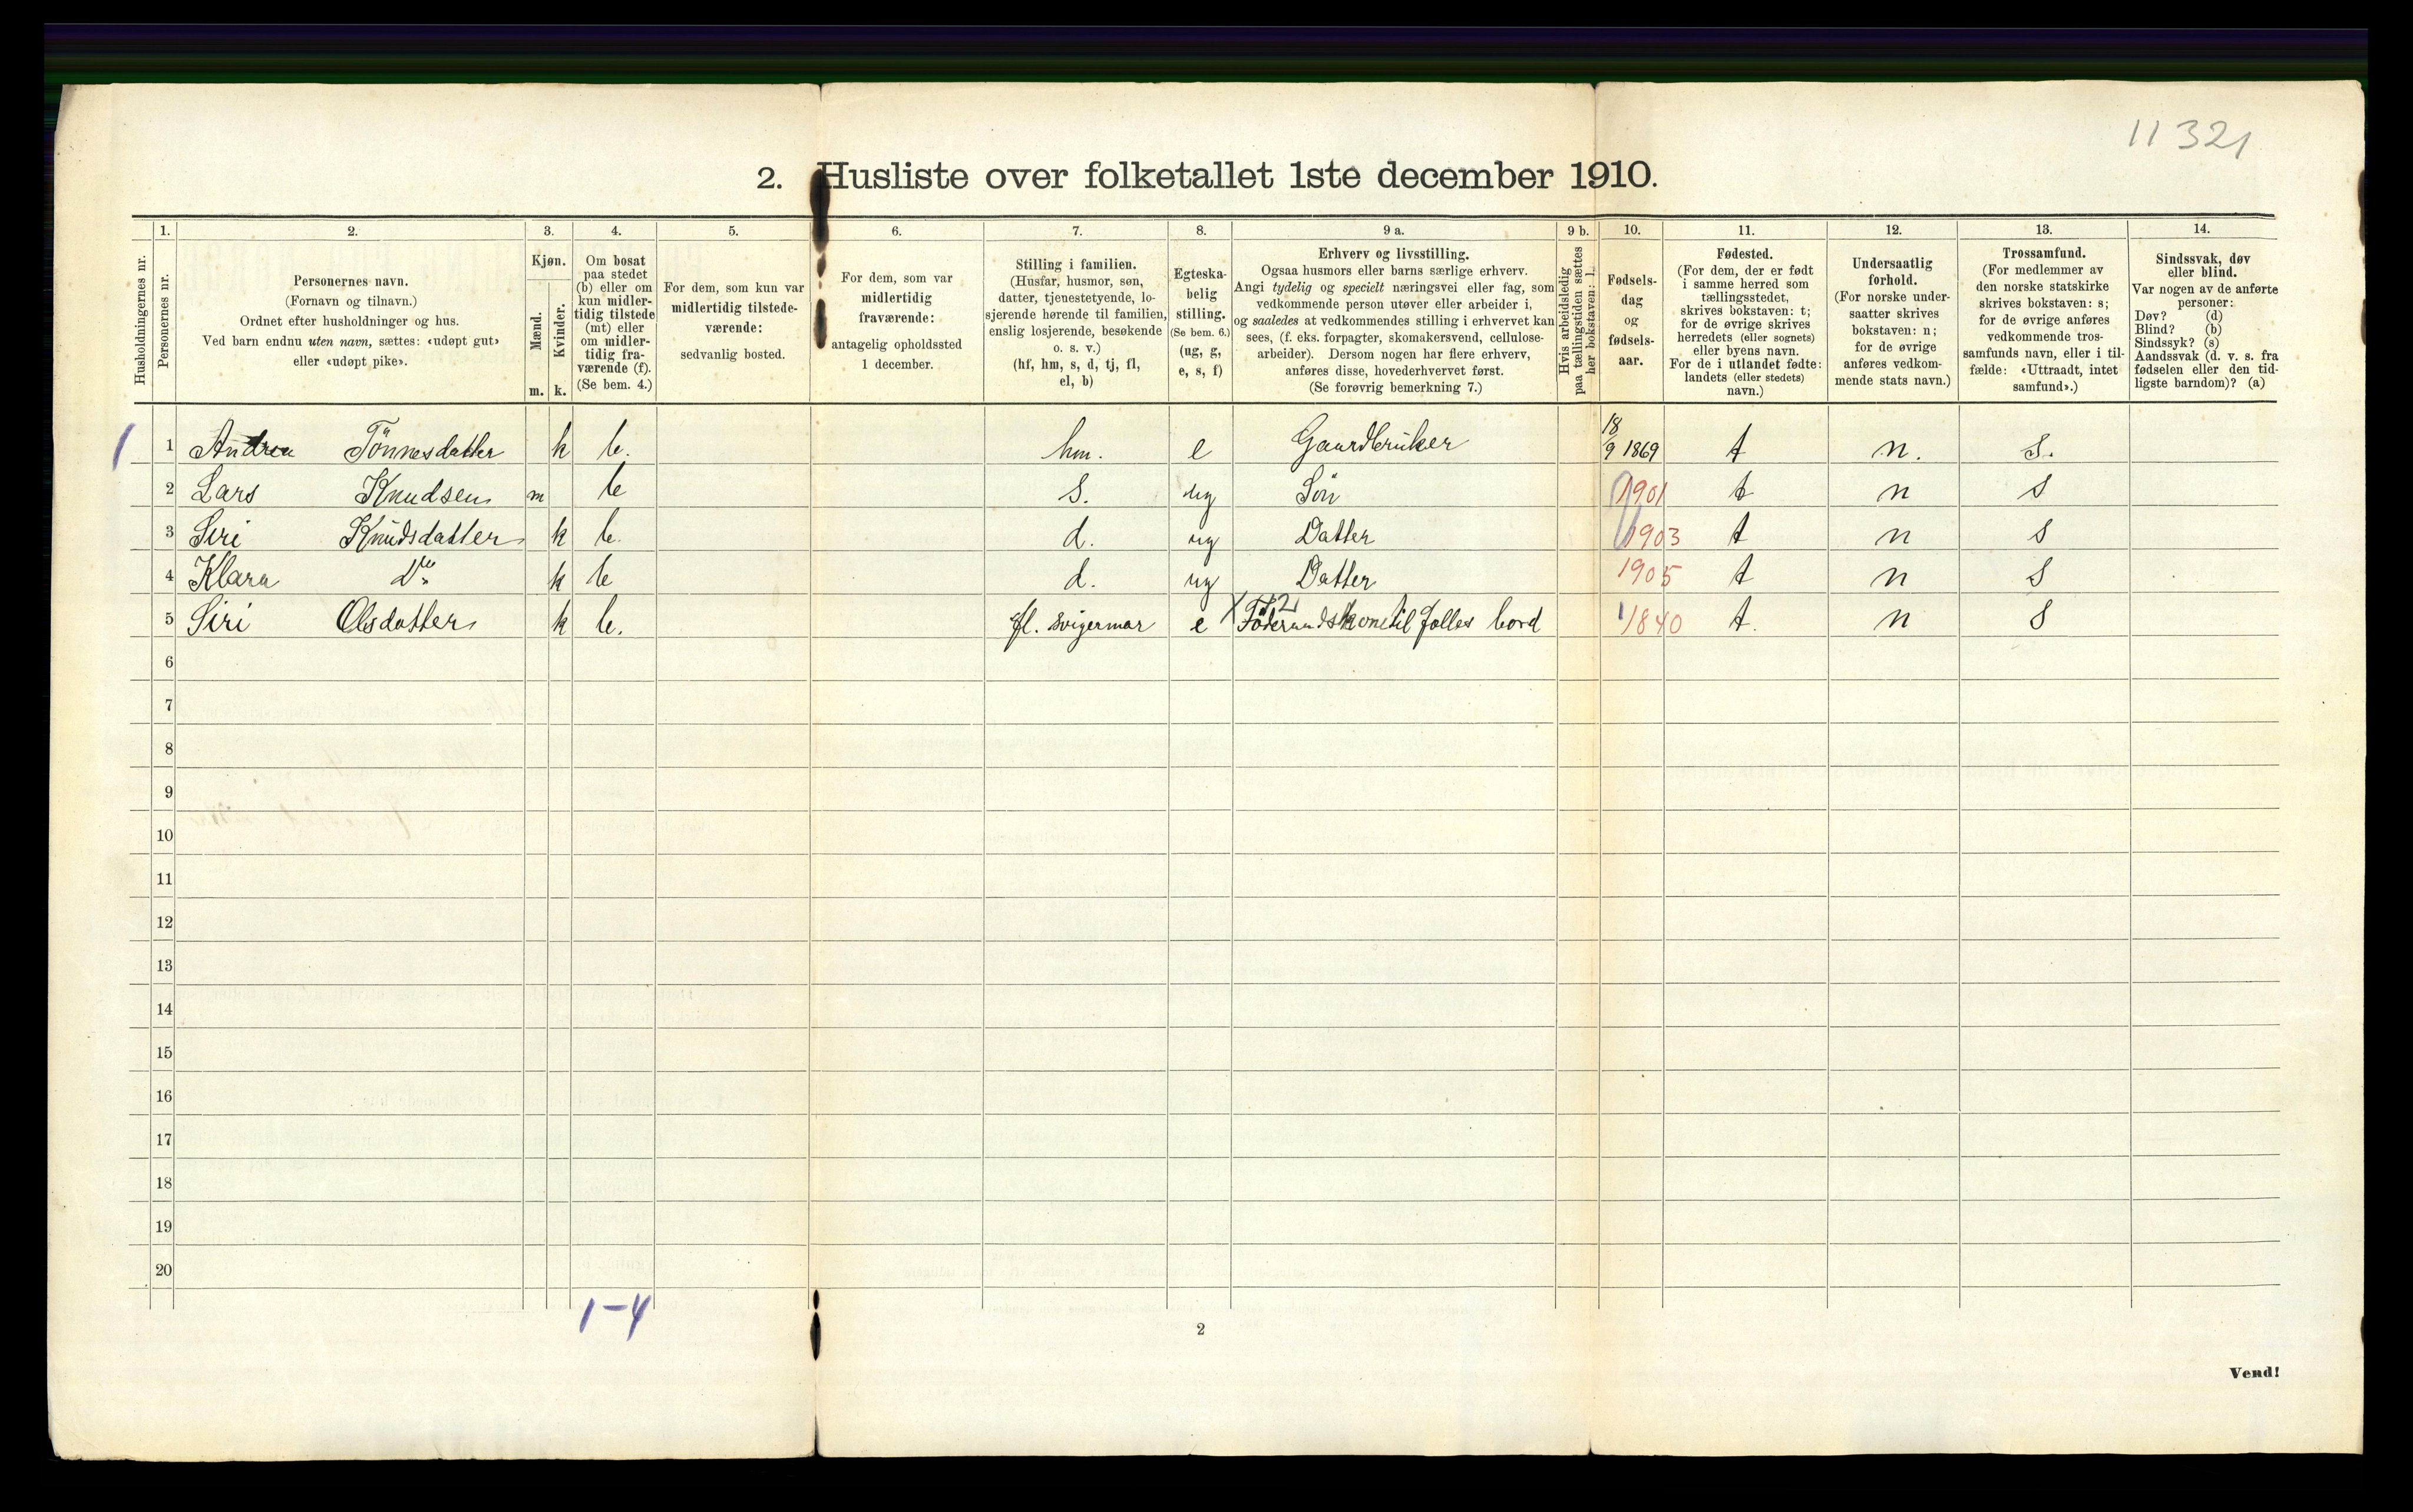 11321
2. Husliste over folketallet 1ste december 1910.
Husholdningernes nr.
1.
Personernes nr.
2.
Personernes navn.
(Fornavn og tilnavn.)
Ordnet efter husholdninger og hus.
Ved barn endnu uten navn, sættes: «udøpt gut»
eller «udøpt pike».
3.
Kjøn.
Mænd.
Kvinder.
m. k.
4.
Om bosat
paa stedet
(b) eller om
kun midler-
tidig tilstede
(mt) eller
om midler-
tidig fra-
værende (f).
(Se bem. 4.)
5.
For dem, som kun var
midlertidig tilstede-
værende:
sedvanlig bosted.
6.
For dem, som var
midlertidig
fraværende:
antagelig opholdssted
1 december.
7.
Stilling i familien.
(Husfar, husmor, søn,
datter, tjenestetyende, lo-
sjerende hørende til familien,
enslig losjerende, besøkende
o. s. v.)
(hf, hm, s, d, tj, fl,
el, b)
8.
Egteska-
belig
stilling.
(Se bem. 6.)
(ug, g,
e, s, f)
9 a.
Erhverv og livsstilling.
Ogsaa husmors eller barns særlige erhverv.
Angi tydelig og specielt næringsvei eller fag, som
vedkommende person utøver eller arbeider i,
og saaledes at vedkommendes stilling i erhvervet kan
sees, (f. eks. forpagter, skomakersvend, cellulose-
arbeider). Dersom nogen har flere erhverv,
anføres disse, hovederhvervet først.
(Se forøvrig bemerkning 7.)
9 b.
Hvis arbeidsledig
paa tællingstiden sættes
her bokstaven: l.
10.
Fødsels-
dag
og
fødsels-
aar.
11.
Fødested.
(For dem, der er født
i samme herred som
tællingsstedet,
skrives bokstaven: t;
for de øvrige skrives
herredets (eller sognets)
eller byens navn.
For de i utlandet fødte:
landets (eller stedets)
navn.)
12.
Undersaatlig
forhold.
(For norske under-
saatter skrives
bokstaven: n;
for de øvrige
anføres vedkom-
mende stats navn.)
13.
Trossamfund.
(For medlemmer av
den norske statskirke
skrives bokstaven: s;
for de øvrige anføres
vedkommende tros-
samfunds navn, eller i til-
fælde: «Uttraadt, intet
samfund».)
14.
Sindssvak, døv
eller blind.
Var nogen av de anførte
personer:
Døv? (d)
Blind? (b)
Sindssyk? (s)
Aandssvak (d. v. s. fra
fødselen eller den tid-
ligste barndom)? (a)
1 1 Andrea Tönnesdatter k b. hm. e Gaardbruker 18/9 1869 t n. s.
2 Lars Knudsen m b s. ug Sön 1901 t n s
3 Siri Knudsdatter k b. d. ug Datter 1903 t n s
4 Klara do k b d. ug Datter 1905 t n s
5 Siri Olsdatter k b. fl. svigermor e Föderaadskone til folles bord 1840 t. n s
6
7
8
9
10
11
12
13
14
15
16
17
18
19
20
1-4
2
Vend!